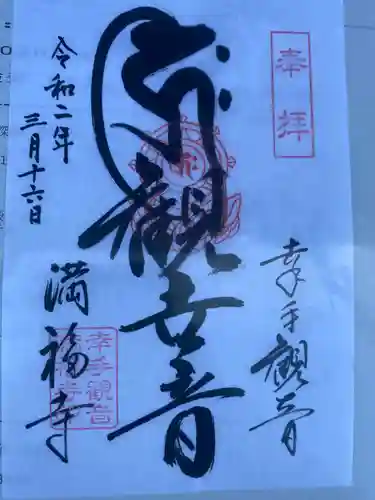 奉拝
幸手観音
観世音
令和二年
三月十六日
満福寺
幸手観音
満福寺